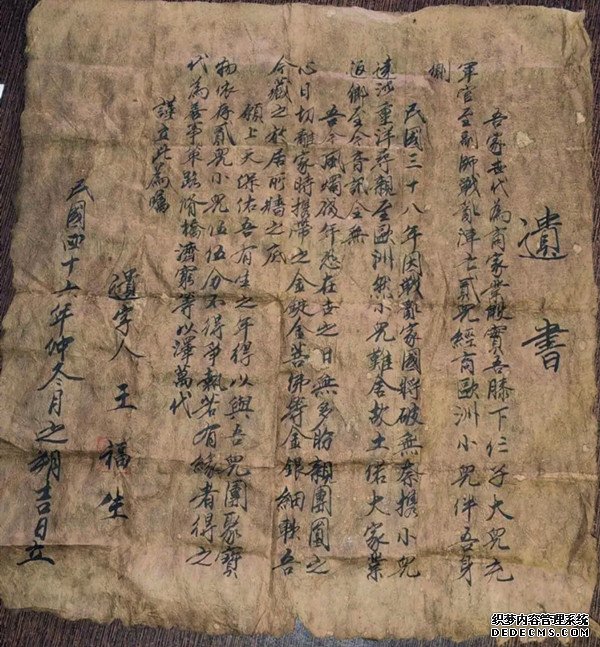 遗書
吾家世代為商家業殷實吾膝下仁子大兒充
軍官至副師戰亂陣亡貳兒經商歐洲小兒伴吾身
側
民國三十八年因戰亂家國將破無奈携小兒
遠涉重洋尋親至歐洲然小兒難舍故土偌大家業
返鄉至今音訊全無
吾今風燭殘年恐在世之日無多盼親團圓之
心日切離家時携帶之金錠金菩佛等金銀細軟吾
合藏之於居所墻之底
願上天保佑吾有生之年得以與吾兒團聚寶
物依存貳兒小兒伍伍分不得爭執若有緣者得之
代為善事平路脩橋濟窮等以澤萬代
謹立此為囑
遺字人 王福生
民國四十二年仲冬月之朔吉日立
织梦内容管理系统
DEDECMS.COM